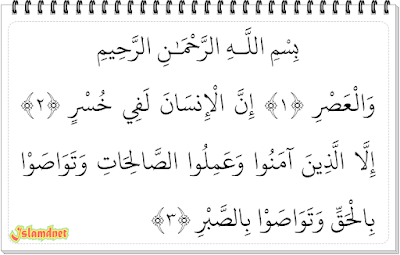 بِسْمِ اللَّـهِ الرَّحْمَـٰنِ الرَّحِيمِ
وَالْعَصْرِ ﴿١﴾ إِنَّ الْإِنسَانَ لَفِي خُسْرٍ ﴿٢﴾
إِلَّا الَّذِينَ آمَنُوا وَعَمِلُوا الصَّالِحَاتِ وَتَوَاصَوْا
بِالْحَقِّ وَتَوَاصَوْا بِالصَّبْرِ ﴿٣﴾
Islamdnet